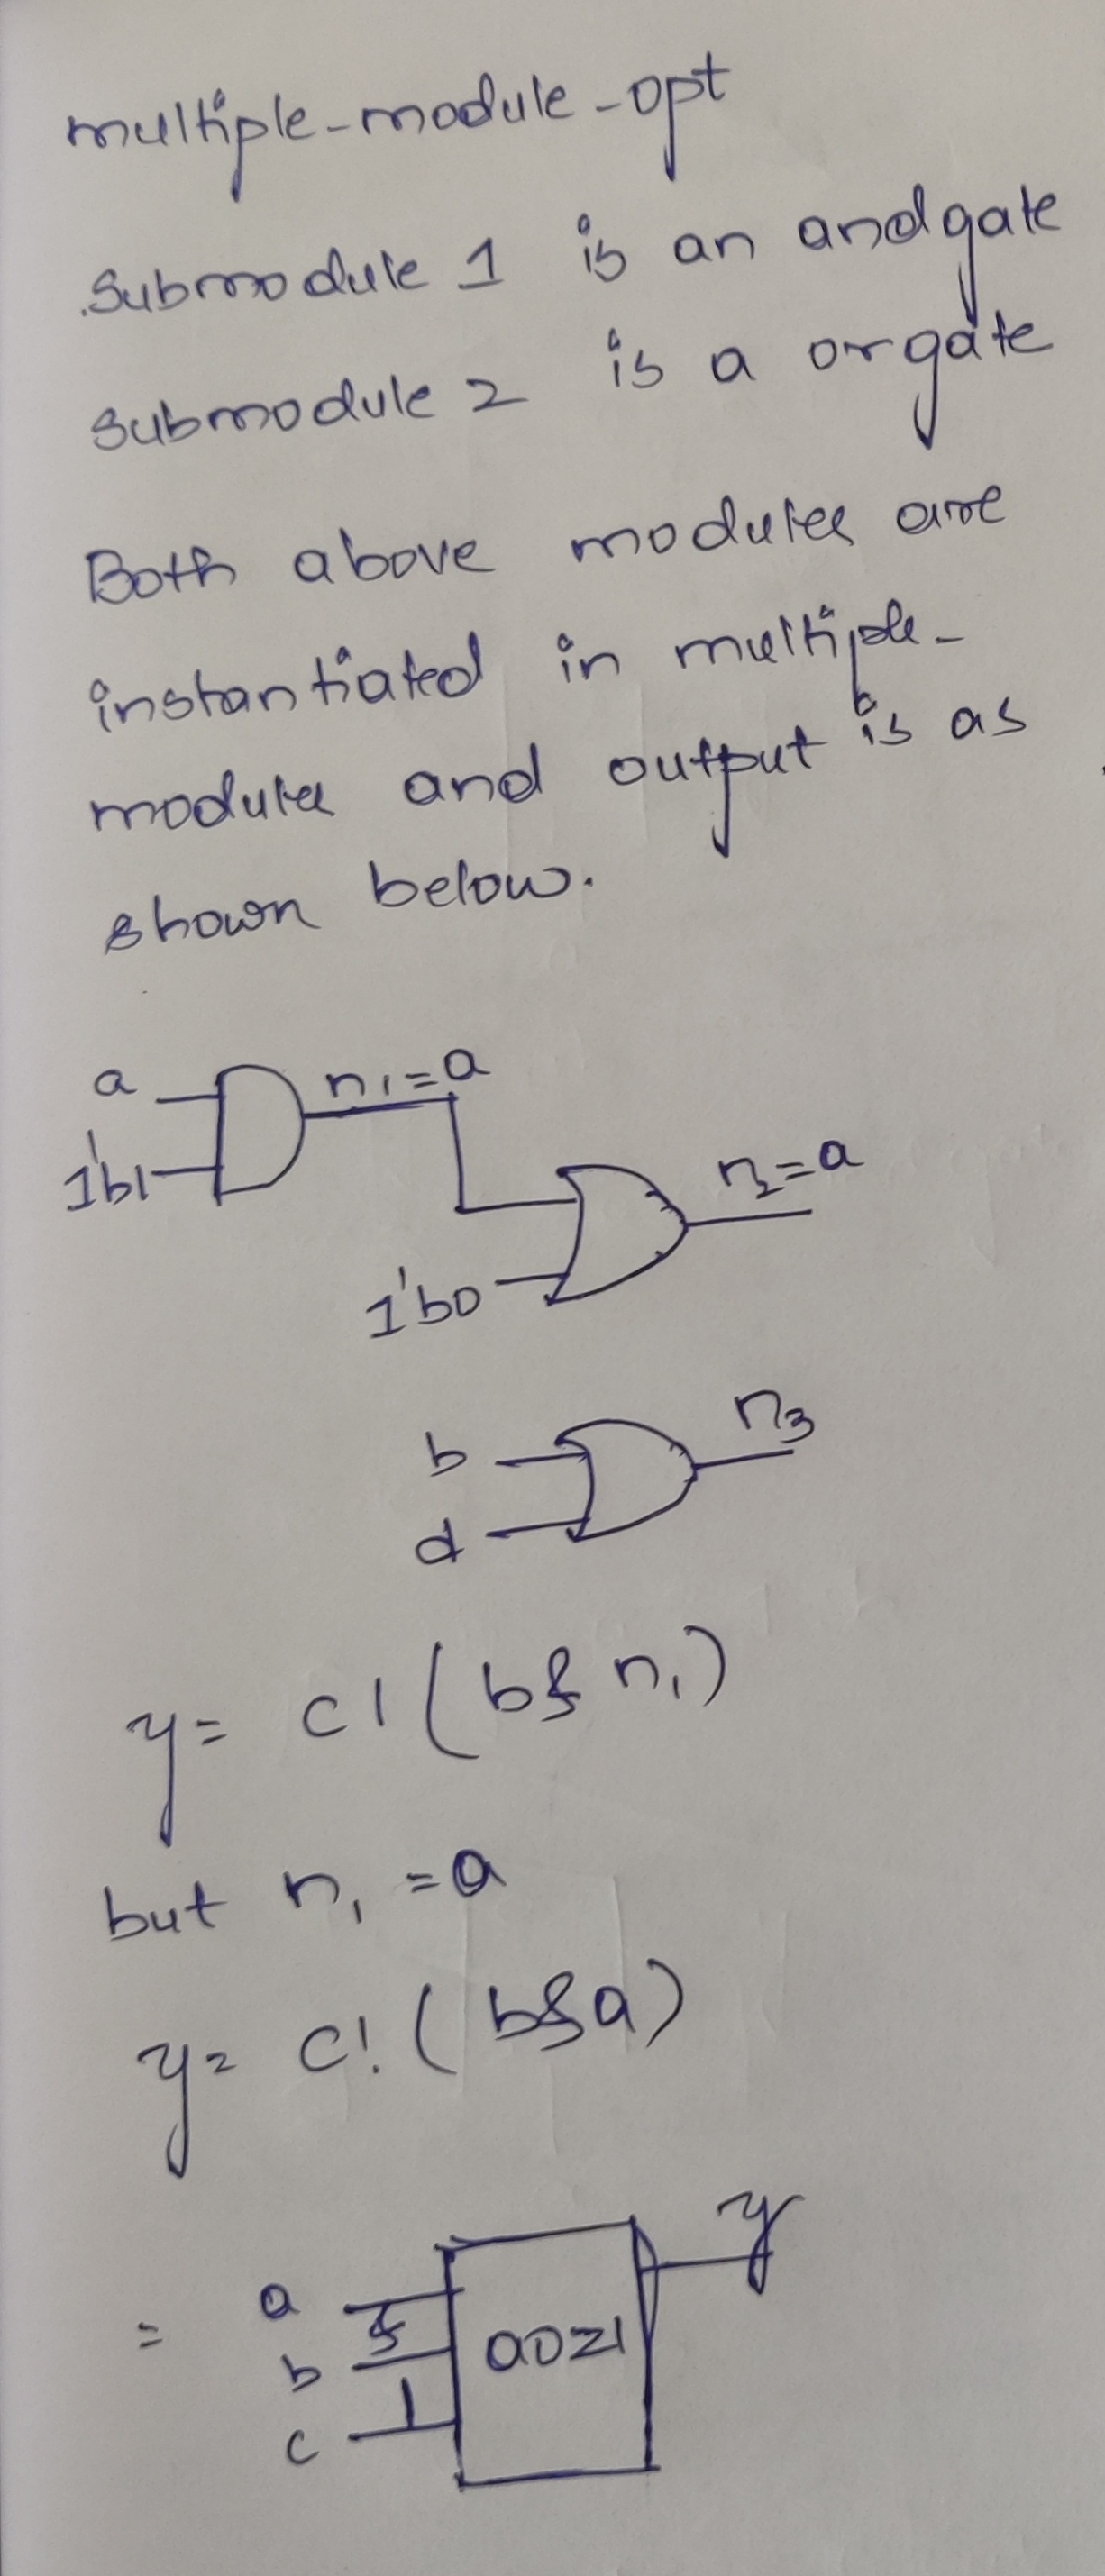 multiple-module-opt
Submodule 1 is an andgate
Submodule 2 is a orgate
Both above modules are
instantiated in multiple-
module and output is as
shown below.
a
n1=a
1'b1
n2=a
1'b0
n3
b
d
y= c|(b& n1)
but n1 =a
y= c!(b&a)
y
= a
&
b
ao21
|
c